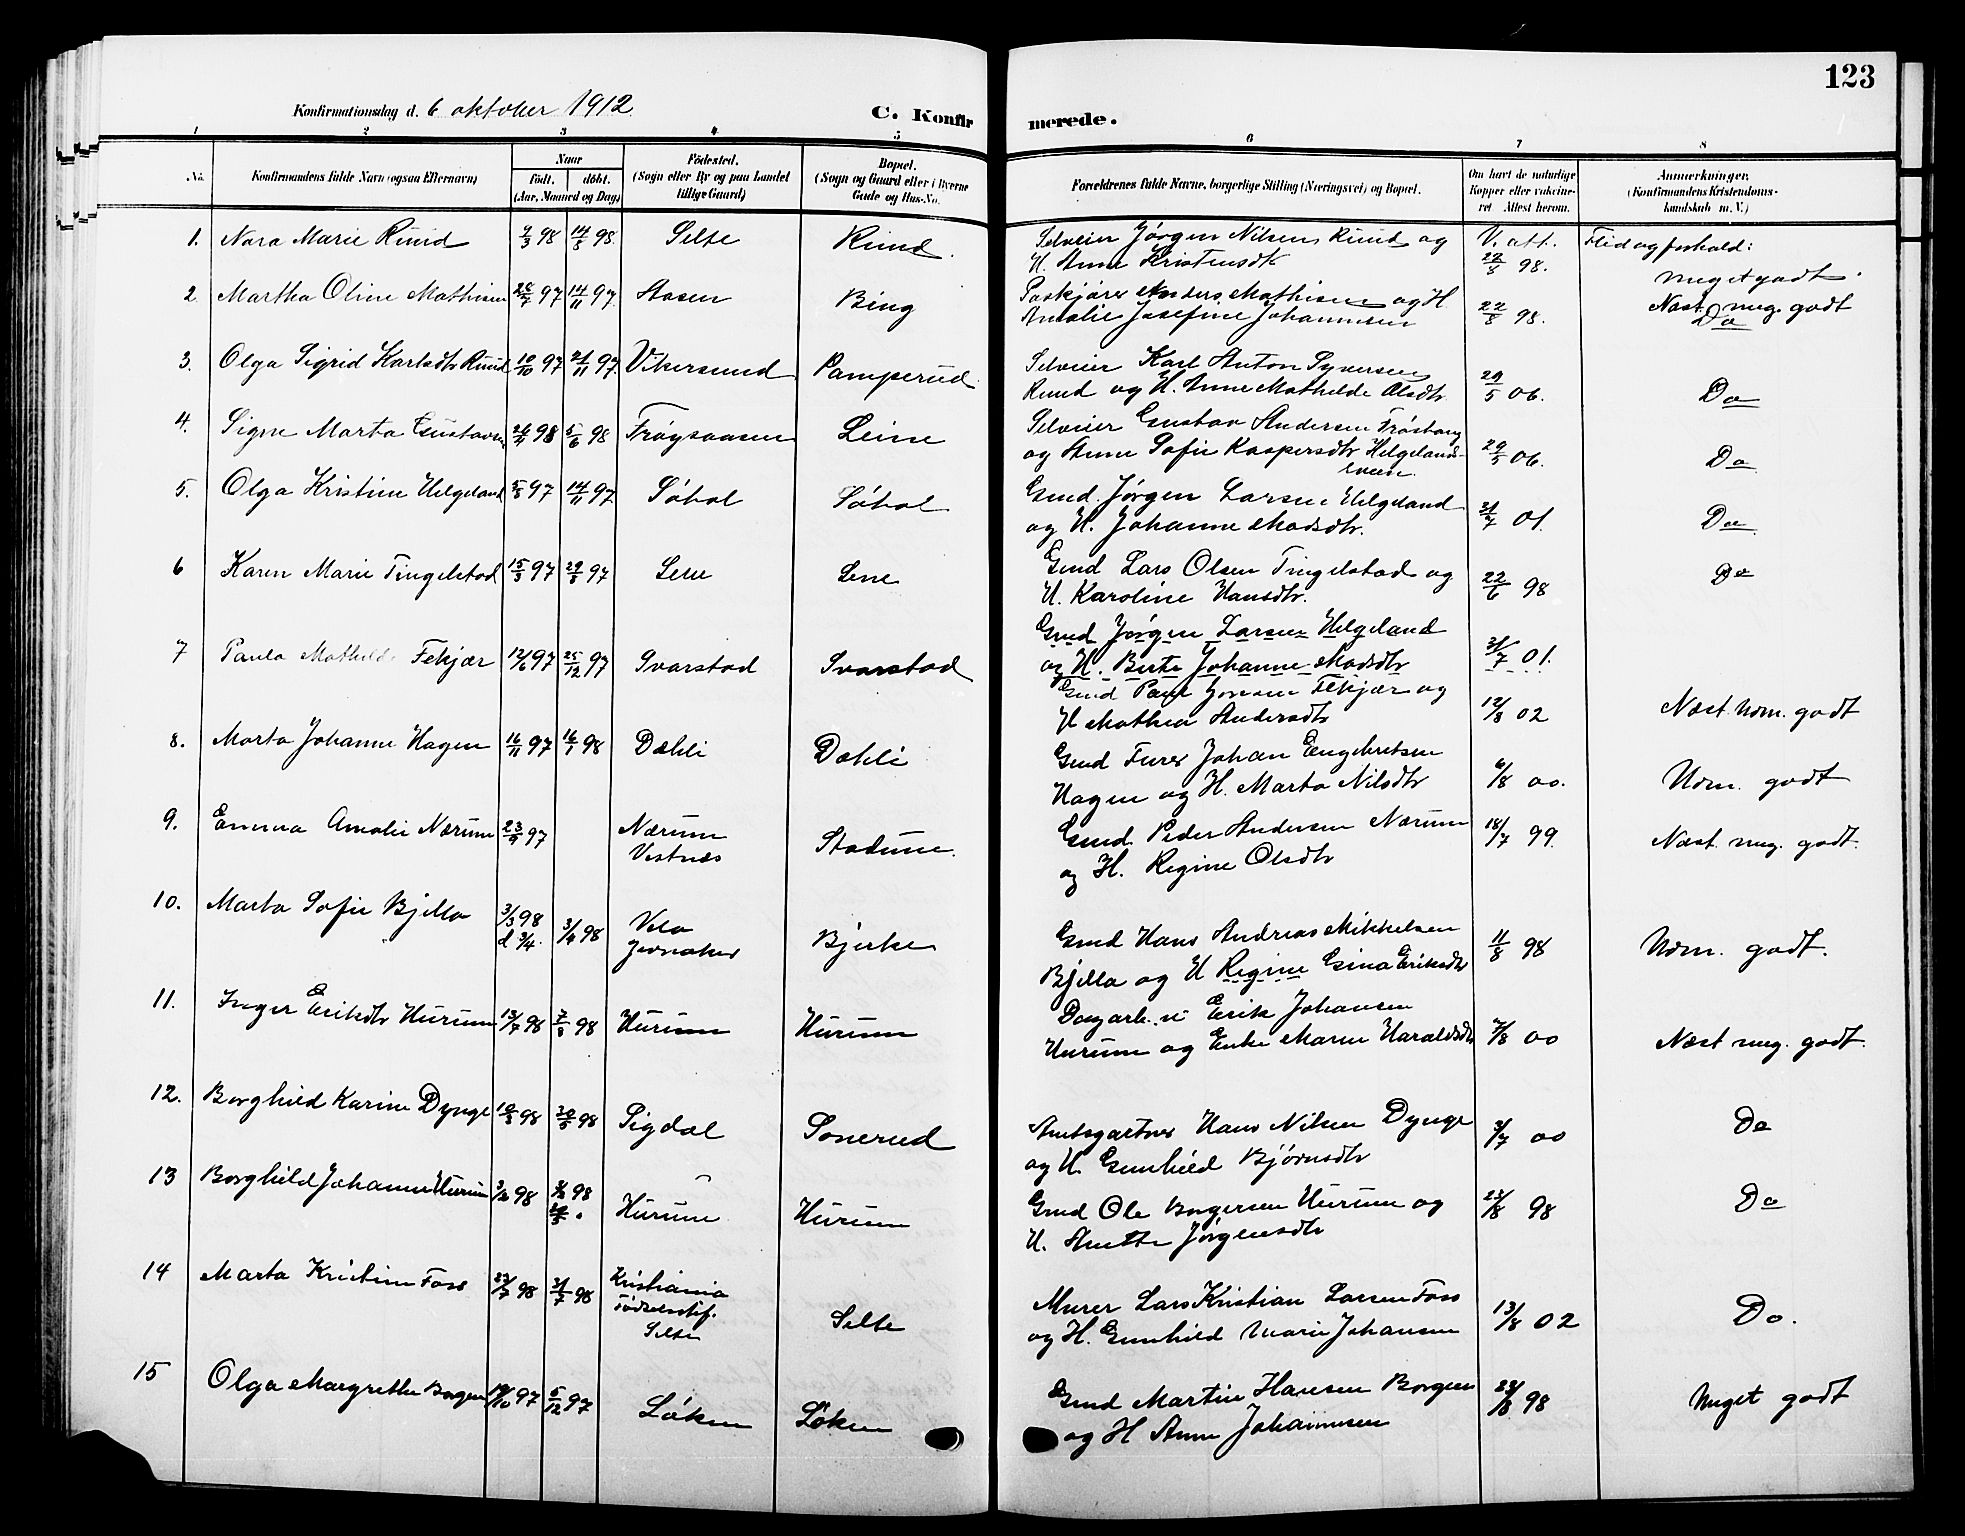 123
Konfirmationsdag d. 6 oktober 1912.
C. Konfir
merede.
1 2 3 4 5 6 7 8
No.
Konfirmandens fulde Navn (ogsaa Efternavn)
Naar
født. døbt.
(Aar, Maaned og Dag)
Fødested.
(Sogn eller By og paa Landet
tillige Gaard)
Bopæl.
(Sogn og Gaard eller i Byerne
Gade og Hus-No.
Forældrenes fulde Navne, borgerlige Stilling (Næringsvei) og Bopæl.
Om havt de naturlige
Kopper eller vakcine-
ret. Attest herom.
Anmerkninger.
(Konfirmandens Kristendoms-
kundskab m. V.)
1. Nara Marie Ruud 9/3 98 14/5 98. Selte Ruud.
Selveier Jørgen Nilsen Ruud og
H. Anne Kristensdtr
V. att.
22/8 98.
Flid og forhold:
meget godt.
2. Martha Oline Mathisen 28/7 97 14/11 97. Aasen Bing
Anders Mathisen og H.
Amalie Josefine Johannesen
22/8 98.
Næst. meg. godt
Do
3. Olga Sigrid Karlsdtr Ruud 10/10 97 21/11 97. Vikersund Pamperud
Selveier Karl Anton Syversen
Ruud og H. Anne Mathilde Olsdtr.
29/5 06.
Do
4. Signe Marta Gustavsen 98 5/6 98 Frøysaasen Leine
Selveier Gustav Andersen
og Anne Sofie Kaspersdtr Helgelands-
eveie.
29/5 06.
Do
5. Olga Kristine Helgeland 5/8 97 14/11 97 Søhol Søhol
Gmd. Jørgen Larsen Helgeland
og H. Johanne Madsdtr.
31/7 01.
Do
6 Karen Marie Tingelstad 15/3 97 29/8 97 Sene Sene
Gmd Lars Olsen Tingelstad og
H. Karoline Hansdtr.
22/6 98
Do
7 Paula Mathilde Fekjær 12/6 97 25/12 97 Svarstad Svarstad
Gmd Jørgen Larsen Helgeland
og H. Berte Johanne Madsdtr
31/7 01.
Gmd Paul Fekjær og
H Mathea Andersdtr
12/8 02
Næst. udm. godt
8. Marta Johanne Hagen 16/11 97 16/1 98 Dæhli Dæhli
Gmd Furer Johan Engebretsen
Hagen og H. Marta Nilsdtr
6/8 00.
Udm. godt
9. Emma Amalie Nærum 23/9 97 Nærum
Vestnes Stadum.
Gmd. Peder Andersen Nærum
og H. Regine Olsdtr
18/7 99.
Næst. meg. godt.
10. Marta Sofie Bjella 3/3 98
d 3/4. 3/4 98 Velo
Jevnaker Bjerke
Gmd Hans Andreas Mikkelsen
Bjella og H Regine Gina Eriksdtr
11/8 98
Udm. godt.
11. Inger Eriksdtr Hurum 13/7 98 7/8 98 Hurum Hurum
Dagarb. Erik Johansen
Hurum og Enke Maren Haraldsdtr
7/8 00
Næst meg. godt.
12. Borghild Karine Dynge 10/3 98 98 Sigdal Sonerud
Amtsgartner Hans Nilsen Dynge
og H. Gunhild Bjørnsdtr
3/7 00
Do
13 Borghild Johanne Hurum 98 98 Hurum Hurum
Gmd Ole Borgersen Hurum og
H. Anette Jørgensdtr
23/8 98
Do
14 Marta Kristine Foss 98 31/7 98 Kristiania
Fødselsstif.
Selte Selte
Murer Lars Kristian Larsen Foss
og H. Gunhild Marie Johansen
13/8 02
Do.
15 Olga Margrethe Borgen 19/10 97 5/12 97 Løken Løken
Gmd Martin Hansen Borgen
og H Anne Johannesen
23/8 98
Meget godt